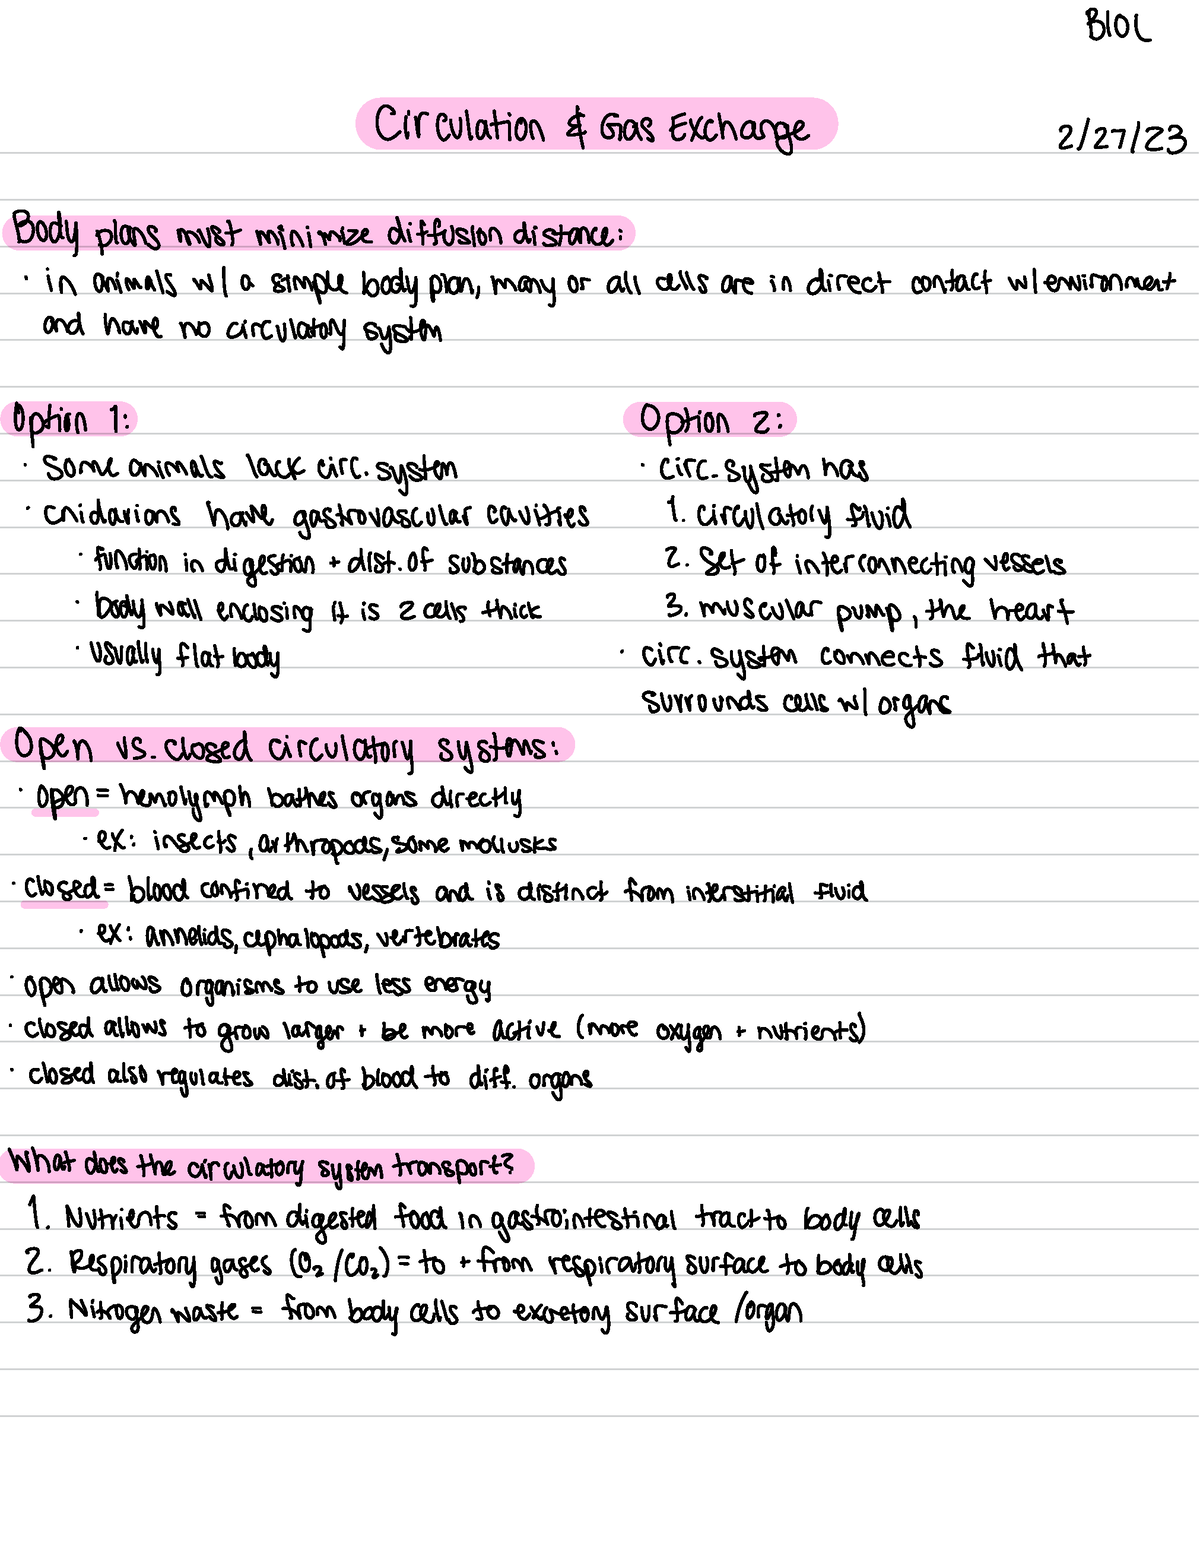 BIOL
Circulation & Gas Exchange
2/27/23
Body plans must minimize diffusion distance:
· in animals w/ a simple body plan, many or all cells are in direct contact w/ environment
and have no circulatory system
Option 1:
· Some animals lack circ. system
· cnidarians have gastrovascular cavities
· function in digestion + dist. of substances
· body wall enclosing it is 2 cells thick
· usually flat body
Option 2:
· circ. system has
1. circulatory fluid
2. Set of interconnecting vessels
3. muscular pump, the heart
· circ. system connects fluid that
surrounds cells w/ organs
Open vs. closed circulatory systems:
· open = hemolymph bathes organs directly
· ex: insects, arthropods, some mollusks
· closed = blood confined to vessels and is distinct from interstitial fluid
· ex: annelids, cephalopods, vertebrates
· open allows organisms to use less energy
· closed allows to grow larger + be more active (more oxygen + nutrients)
· closed also regulates dist. of blood to diff. organs
What does the circulatory system transport?
1. Nutrients = from digested food in gastrointestinal tract to body cells
2. Respiratory gases (O₂/CO₂) = to + from respiratory surface to body cells
3. Nitrogen waste = from body cells to excretory surface/organ